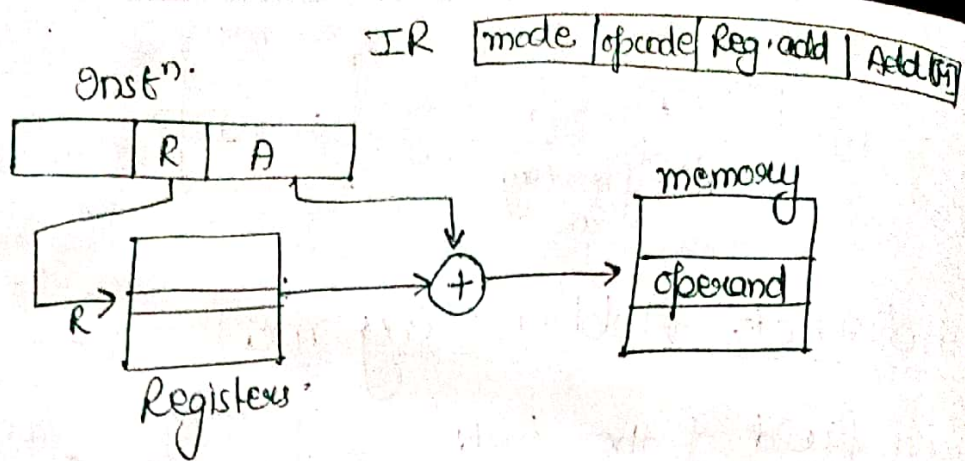 IR mode opcode Reg.add Add[M]
Instⁿ.
R A
memory
operand
+
R
Registers.